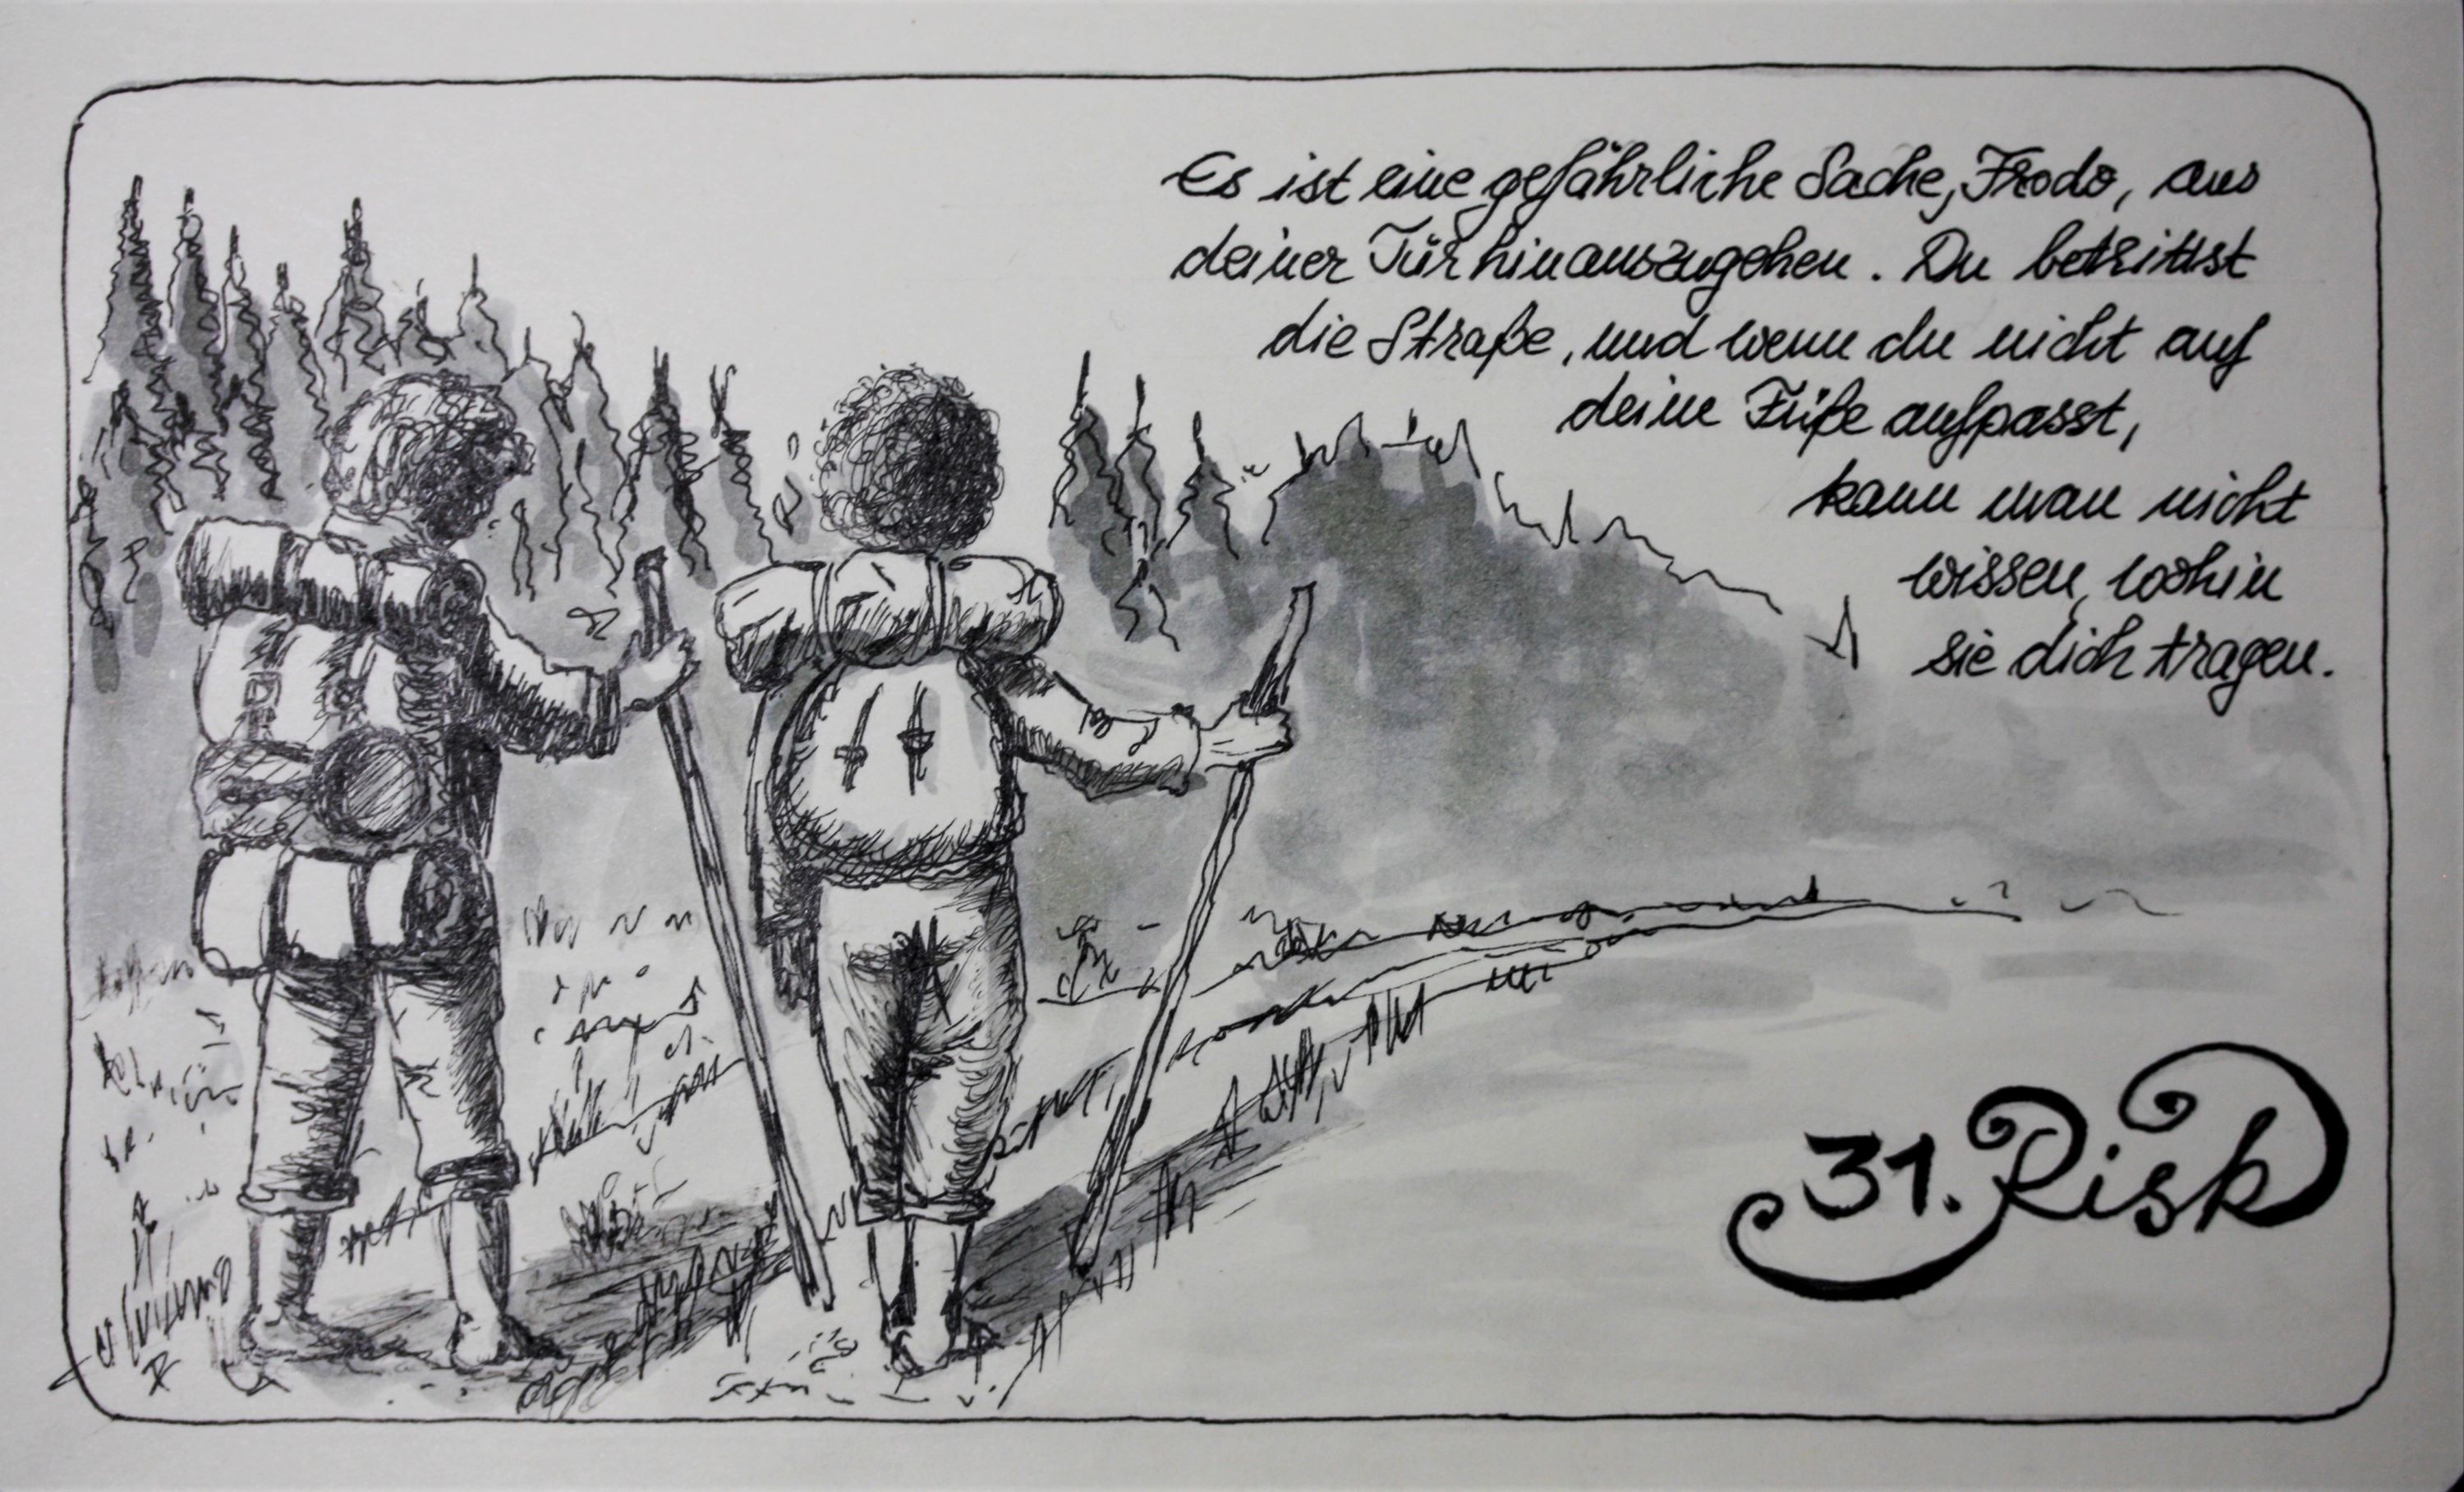 Es ist eine gefährliche Sache, Frodo, aus
deiner Tür hinauszugehen. Du betrittst
die Straße, und wenn du nicht auf
deine Füße aufpasst,
kann man nicht
wissen, wohin
sie dich tragen.
31. Risk